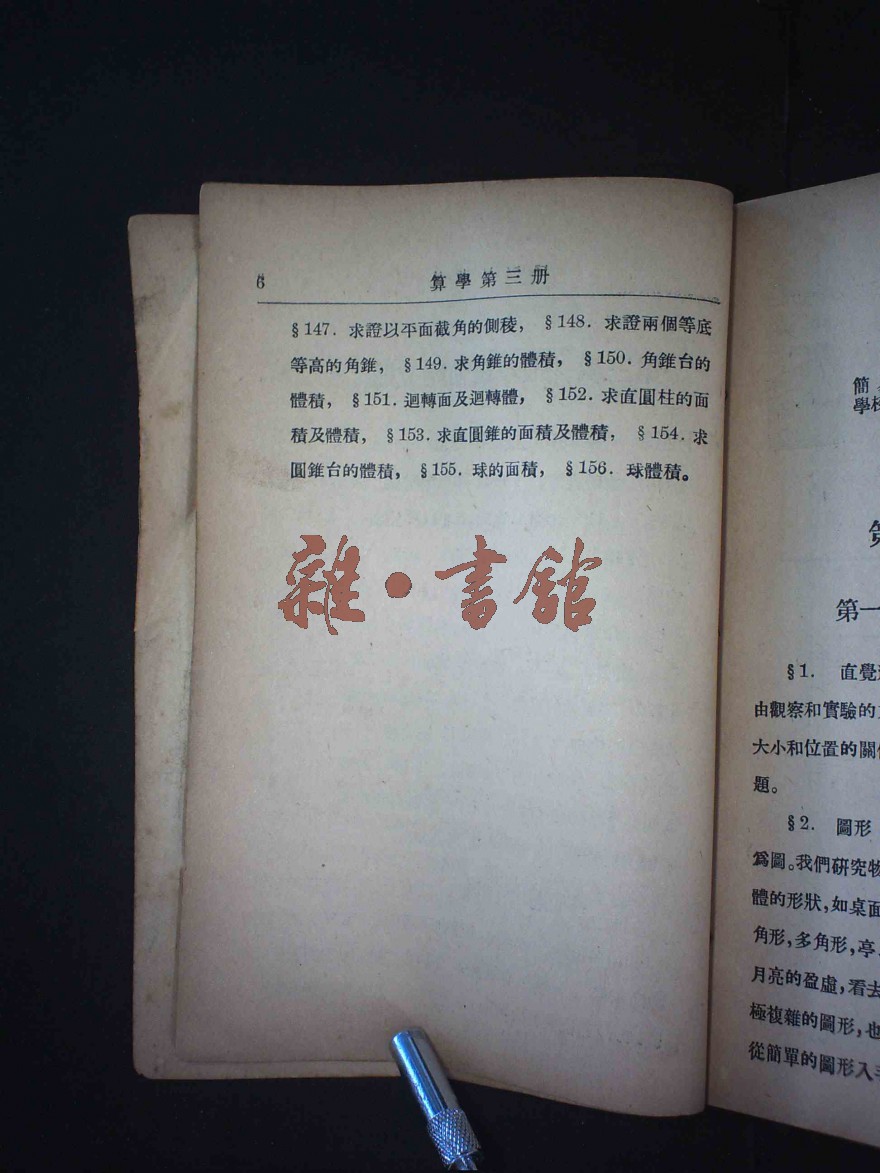 6
算學第三册
§147. 求證以平面截角的側稜， §148. 求證兩個等底
等高的角錐， §149. 求角錐的體積， §150. 角錐台的
體積， §151. 迴轉面及迴轉體， §152. 求直圓柱的面
積及體積， §153. 求直圓錐的面積及體積， §154. 求
圓錐台的體積， §155. 球的面積， §156. 球體積。
雜·書館
簡
學
第一
§1. 直覺
由觀察和實驗的
大小和位置的關
題。
§2. 圖形
爲圖。我們研究物
體的形狀，如桌面
角形，多角形，亭
月亮的盈虛，看去
極複雜的圖形，也
從簡單的圖形入